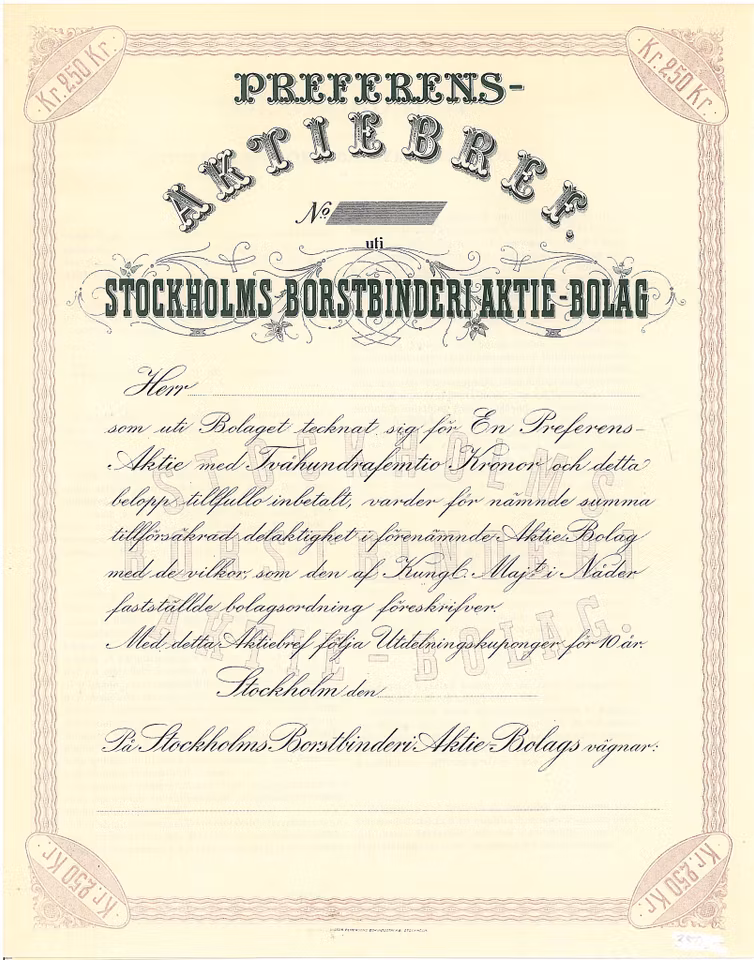 Kr. 250 Kr.
Kr. 250 Kr.
PREFERENS-
AKTIEBREF.
No.
uti
STOCKHOLMS BORSTBINDERI AKTIE-BOLAG
Herr
som uti Bolaget tecknat sig för En Preferens-
Aktie med Tvåhundrafemtio Kronor och detta
belopp tillfullo inbetalt, varder för nämnde summa
tillförsäkrad delaktighet i förenämnde Aktie Bolag
med de vilkor, som den af Kungl. Majt i Nåder
fastställde bolagsordning föreskrifver.
Med detta Aktiebref följa Utdelningskuponger för 10 år.
Stockholm den
På Stockholms Borstbinderi Aktie-Bolags vägnar:
STOCKHOLMS
BORSTBINDERI
AKTIE-BOLAG.
Kr. 250 Kr.
Kr. 250 Kr.